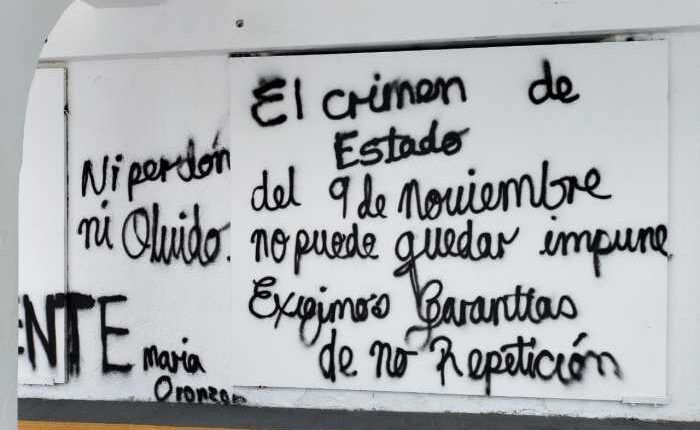 Ni perdón
ni Olvido.
ENTE
maria
El crimen de
Estado
del 9 de Noviembre
no puede quedar impune
Exigimos garantías
de no Repetición